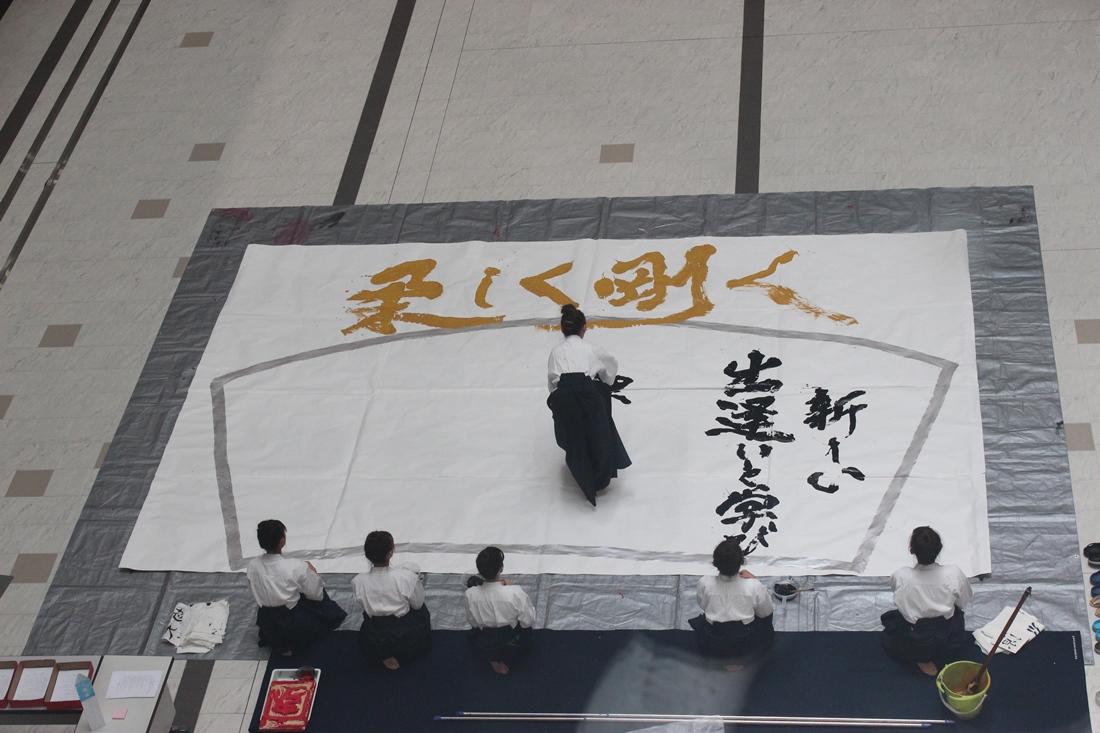 柔しく剛く
新しい
出逢いと学び